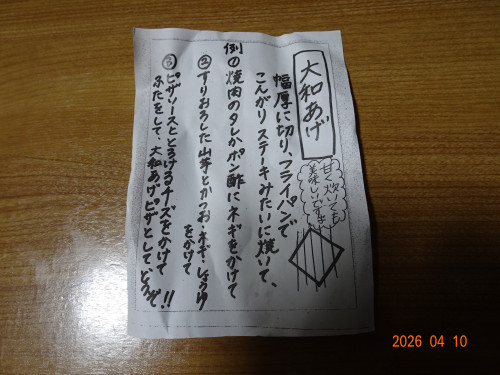 大和あげ
甘く炊いても
美味しいですよ
幅厚に切り、フライパンで
こんがりステーキみたいに焼いて、
例の焼肉のタレかポン酢にネギをかけて
②すりおろした山芋とかつお・ネギ・しょうゆ
をかけて
③ピザソースととろけるチーズをかけて
ふたをして、大和あげピザとしてどうぞ!!
2026 04 10